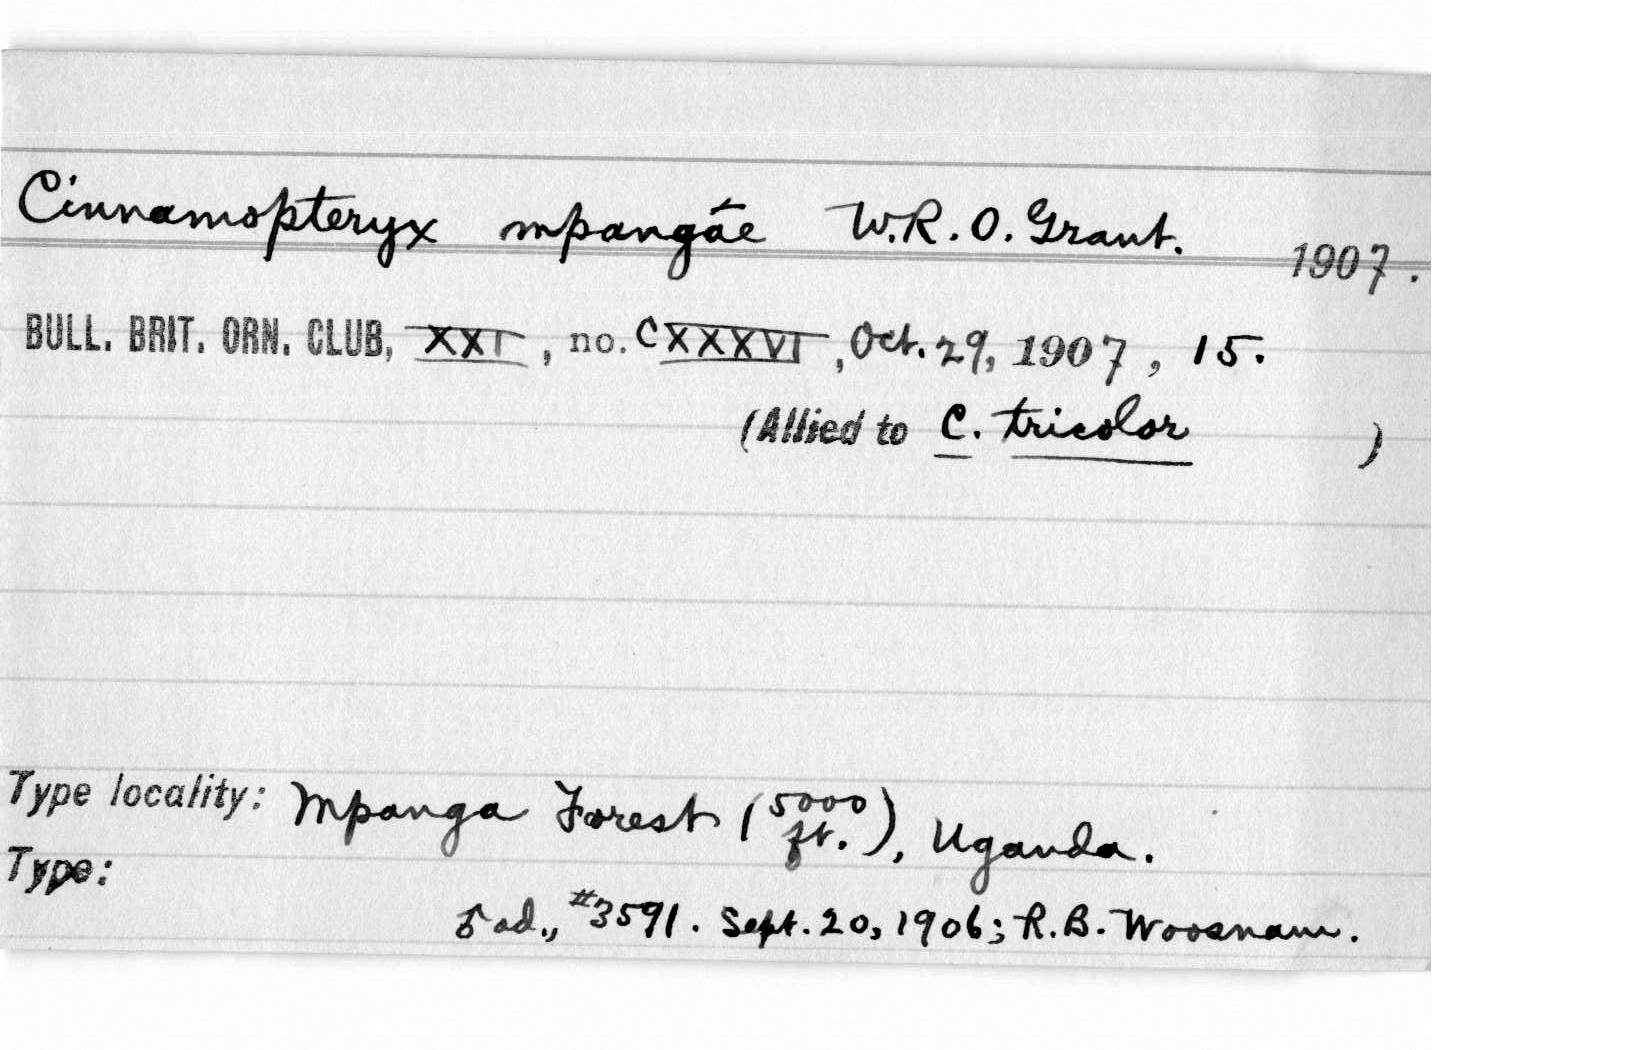 Cinnamopteryx mpangae W.R.O. Grant. 1907.
BULL. BRIT. ORN. CLUB, XXI, no. CXXXVI, Oct. 29, 1907, 15.
(Allied to C. tricolor )
Type locality: Mpanga Forest (5000 ft.), Uganda.
Type:
♂ ad., #3591. Sept. 20, 1906; R.B. Woosnam.